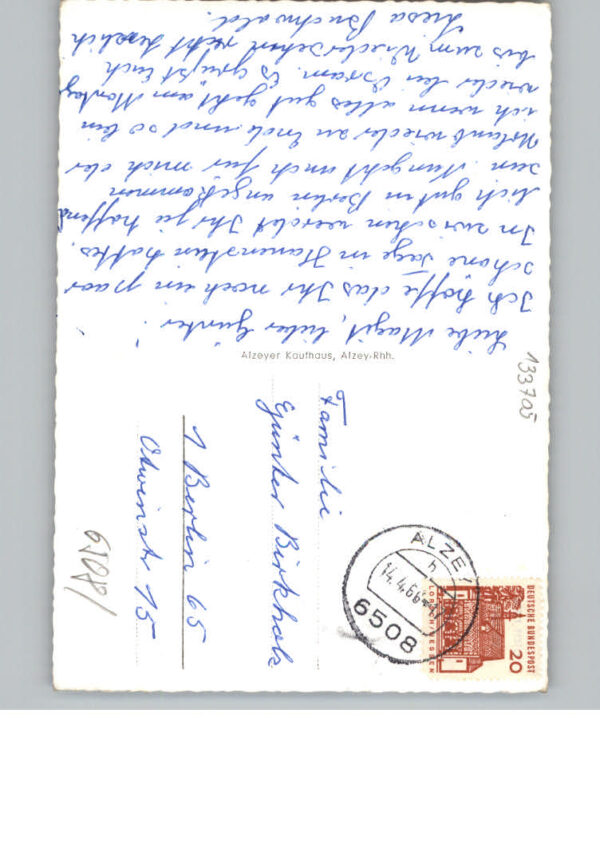 Liebe Magit, lieber Günter!
Ich hoffe das Ihr noch ein paar
schöne Tage in Hauenstein hattet.
In zwischen werdet Ihr ja hoffend
lich gut in Berlin angekommen
sein. Nun geht auch für mich der
Urlaub wieder zu Ende und so bin
ich wenn alles gut geht am Montag
wieder bei Bram. Es grüßt Euch
bis zum Wiedersehen recht herzlich
Luesa Buchwald.
Alzeyer Kaufhaus, Alzey-Rhh.
133705
Familie
Günter Birkholz
1 Berlin 65
Otwinstr 15
ALZEY
14.4.66
6508
DEUTSCHE BUNDESPOST
20
LORSCH HESSEN